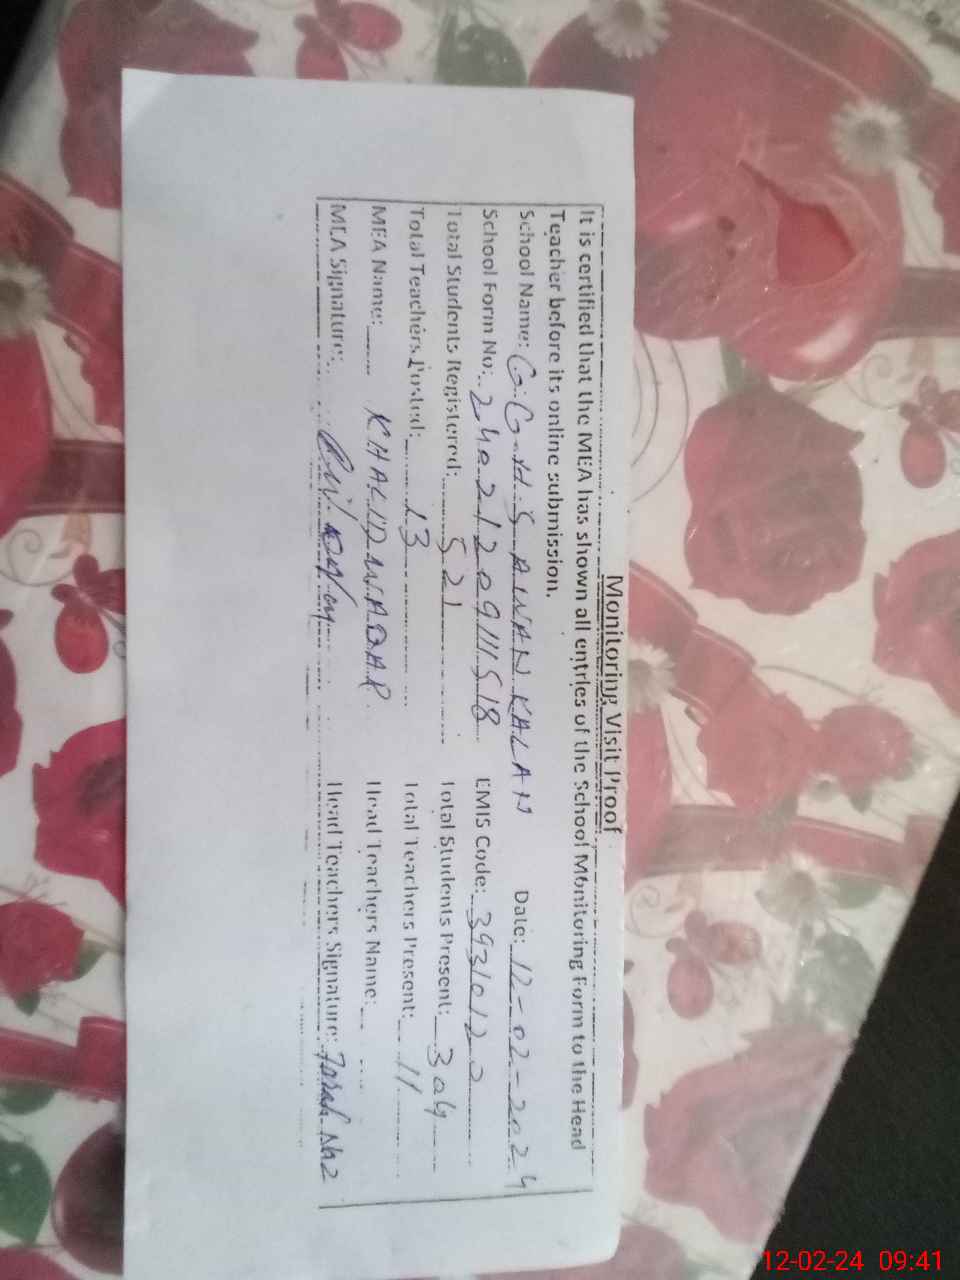 Monitoring Visit Proof
It is certified that the MEA has shown all entries of the School Monitoring Form to the Head
Teacher before its online submission.
School Name: G.G.H.S AWAN KALAN Date: 12-02-2024
School Form No: 2402120911518 EMIS Code: 39310120
Total Students Registered: 521 Total Students Present: 304
Total Teachers Posted: 13 Total Teachers Present: 11
MEA Name: KHALID Head Teachers Name:
MEA Signature: Head Teachers Signature: Farah Naz
12-02-24 09:41